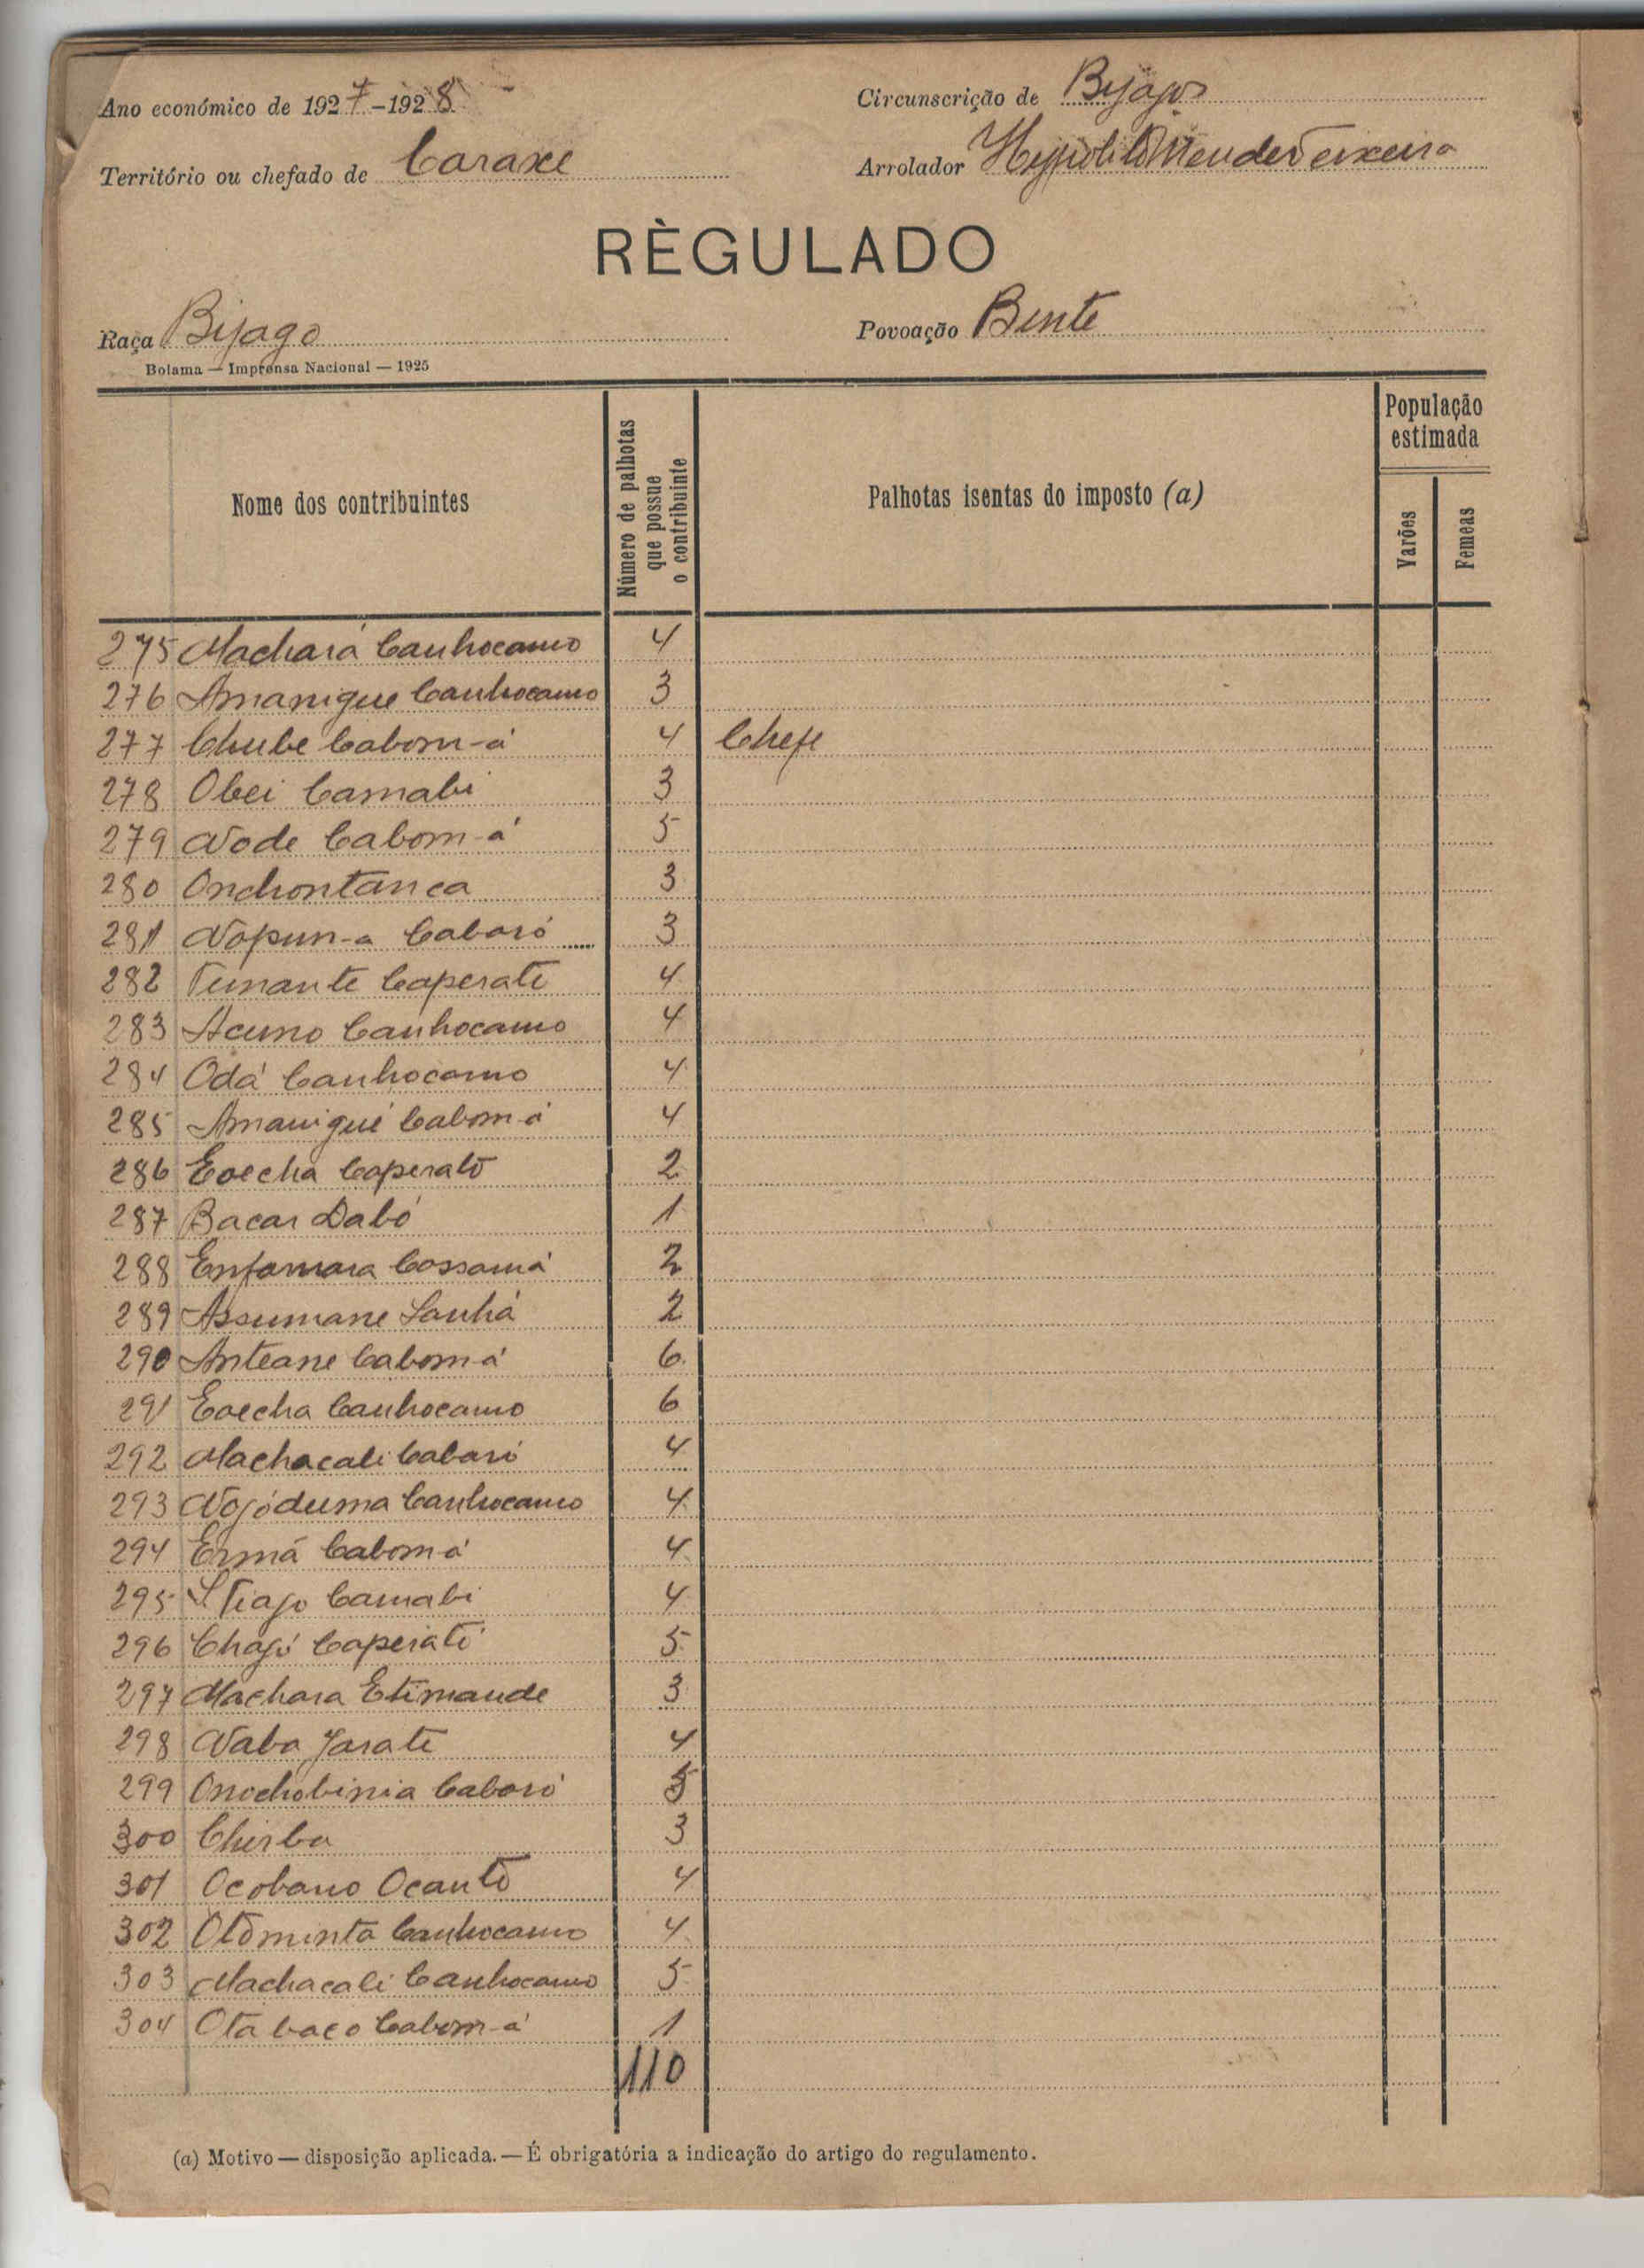 Ano económico de 1927-1928
Circunscrição de Bijagos
Território ou chefado de Caraxe
Arrolador Hypolito Mendes Teixeira
RÈGULADO
Raça Bijago
Povoação Bente
Bolama — Imprensa Nacional — 1925
Nome dos contribuintes
Número de palhotas que possue o contribuinte
Palhotas isentas do imposto (a)
População estimada
Varões
Femeas
275 Machará Canhocamo 4
276 Amanigue Canhocamo 3
277 Chube Cabom-á 4 Chefe
278 Obei Camabi 3
279 Node Cabom-á 5
280 Onchontanca 3
281 Nopun-a Cabaró 3
282 Tunante Caperate 4
283 Acuno Canhocamo 4
284 Odá Canhocamo 4
285 Amanigué Cabom-á 4
286 Eoecha Caperato 2
287 Bacar Dabó 1
288 Enfamara Cossamá 2
289 Assumane Sanhá 2
290 Anteane Cabom-á 6
291 Eoecha Canhocamo 6
292 Machacali Cabaró 4
293 Nojóduma Canhocamo 4
294 Ermá Cabom-á 4
295 Tiago Camabi 4
296 Caperate 5
297 Machara Etimande 3
298 Naba Jarate 4
299 Onochobinia Cabaró
300 Chirba 3
301 Ocobano Ocanto 4
302 Otominta Canhocamo 4
303 Machacali Canhocamo 5
304 Otabaco Cabom-á 1
110
(a) Motivo — disposição aplicada. — É obrigatória a indicação do artigo do regulamento.